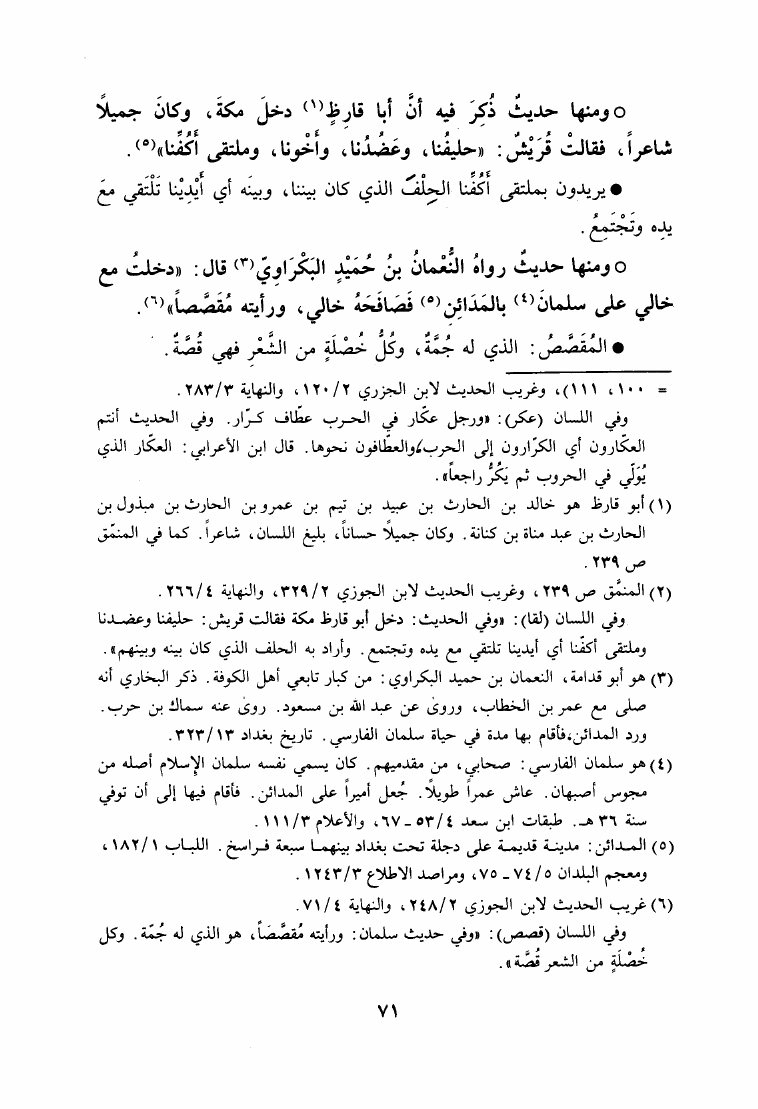 ○ ومنها حديثٌ ذُكِرَ فيه أنَّ أبا قارِظٍ(١) دخلَ مكةَ، وكانَ جميلاً
شاعراً، فقالتْ قُرَيْشٌ: «حليفُنا، وعَضُدُنا، وأَخْونا، وملتقى أَكُفِّنا»(٥).
● يريدون بملتقى أَكُفِّنا الحِلْفَ الذي كان بيننا، وبينَه أي أَيْدِيْنا تَلْتَقي معَ
يدِه وتَجْتَمِعُ.
○ ومنها حديثٌ رواهُ النُّعْمانُ بنُ حُمَيْدٍ البَكْرَاوِيّ(٣) قال: «دخلتُ مع
خالي على سلمانَ(٤) بالمَدَائِنِ(٥) فَصَافَحَهُ خالي، ورأيته مُقَصَّصاً»(٦).
● المُقَصَّصُ: الذي له جُمَّةٌ، وكُلُّ خُصْلَةٍ من الشَّعْرِ فهي قُصَّةٌ.
= ١٠٠، ١١١)، وغريب الحديث لابن الجزري ١٢٠/٢، والنهاية ٢٨٣/٣.
وفي اللسان (عكر): «ورجل عكّار في الحرب عطّاف كرّار. وفي الحديث أنتم
العكّارون أي الكرّارون إلى الحرب/والعطّافون نحوها. قال ابن الأعرابي: العكّار الذي
يُوَلّي في الحروب ثم يَكُرُّ راجعاً».
(١) أبو قارظ هو خالد بن الحارث بن عبيد بن تيم بن عمرو بن الحارث بن مبذول بن
الحارث بن عبد مناة بن كنانة. وكان جميلاً حساناً، بليغ اللسان، شاعراً. كما في المنمّق
ص ٢٣٩.
(٢) المنمَّق ص ٢٣٩، وغريب الحديث لابن الجوزي ٣٢٩/٢، والنهاية ٢٦٦/٤.
وفي اللسان (لقا): «وفي الحديث: دخل أبو قارظ مكة فقالت قريش: حليفنا وعضدنا
وملتقى أكفّنا أي أيدينا تلتقي مع يده وتجتمع. وأراد به الحلف الذي كان بينه وبينهم».
(٣) هو أبو قدامة، النعمان بن حميد البكراوي: من كبار تابعي أهل الكوفة. ذكر البخاري أنه
صلى مع عمر بن الخطاب، وروىٰ عن عبد الله بن مسعود. روىٰ عنه سماك بن حرب.
ورد المدائن،فأقام بها مدة في حياة سلمان الفارسي. تاريخ بغداد ٣٢٣/١٣.
(٤) هو سلمان الفارسي: صحابي، من مقدميهم. كان يسمي نفسه سلمان الإسلام أصله من
مجوس أصبهان. عاش عمراً طويلاً. جُعل أميراً على المدائن. فأقام فيها إلى أن توفي
سنة ٣٦ هـ. طبقات ابن سعد ٥٣/٤ ـ ٦٧، والأعلام ١١١/٣.
(٥) المدائن: مدينة قديمة على دجلة تحت بغداد بينهما سبعة فراسخ. اللباب ١٨٢/١،
ومعجم البلدان ٧٤/٥ ـ ٧٥، ومراصد الاطلاع ١٢٤٣/٣.
(٦) غريب الحديث لابن الجوزي ٢٤٨/٢، والنهاية ٧١/٤.
وفي اللسان (قصص): «وفي حديث سلمان: ورأيته مُقصَّصاً، هو الذي له جُمّة. وكل
خُصْلَةٍ من الشعر قُصَّة».
٧١